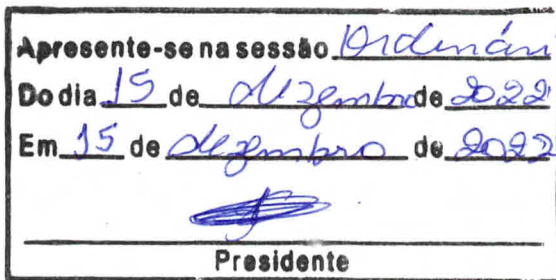 Apresente-se na sessão Ordinári
Do dia 15 de dezembro de 2022
Em 15 de dezembro de 2022
Presidente